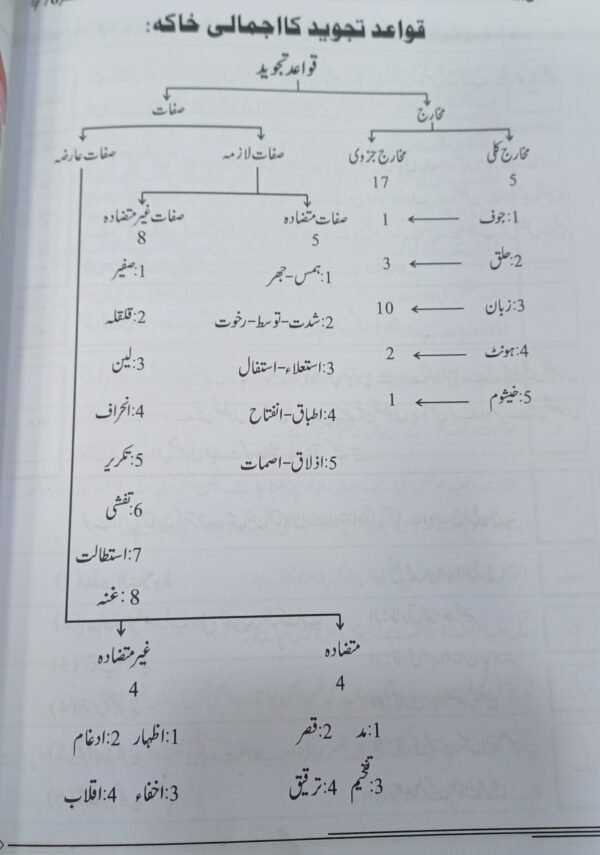 قواعد تجوید کا اجمالی خاکہ:
قواعد تجوید
مخارج
صفات
مخارج کلی
5
مخارج جزوی
17
صفات لازمہ
صفات عارضہ
1:جوف ← 1
2:حلق ← 3
3:زبان ← 10
4:ہونٹ ← 2
5:خیشوم ← 1
صفات متضادہ
5
1:ہمس-جہر
2:شدت-توسط-رخوت
3:استعلاء-استفال
4:اطباق-انفتاح
5:اذلاق-اصمات
صفات غیر متضادہ
8
1:صفیر
2:قلقلہ
3:لین
4:انحراف
5:تکریر
6:تفشی
7:استطالت
8:غنہ
متضادہ
4
1:مد 2:قصر
3:تفخیم 4:ترقیق
غیر متضادہ
4
1:اظہار 2:ادغام
3:اخفاء 4:اقلاب